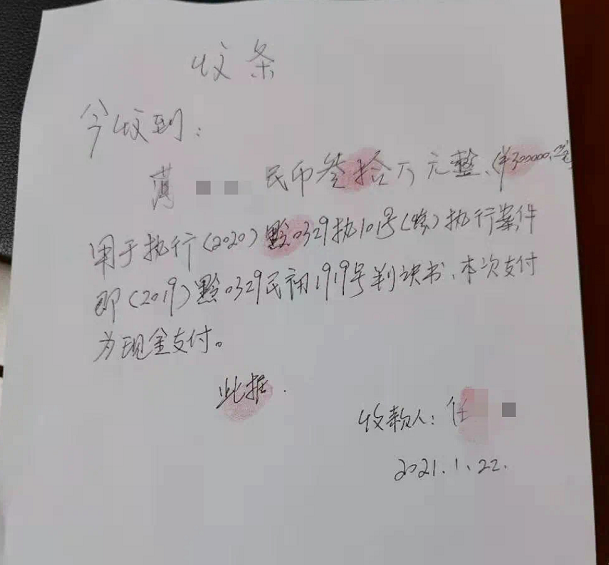 收条
今收到：
黄 民币叁拾万元整、(¥300000.00元)
用于执行(2020)黔0329执101号(恢)执行案件
即(2019)黔0329民初1919号判决书、本次支付
为现金支付。
此据.
收款人：任
2021.1.22.